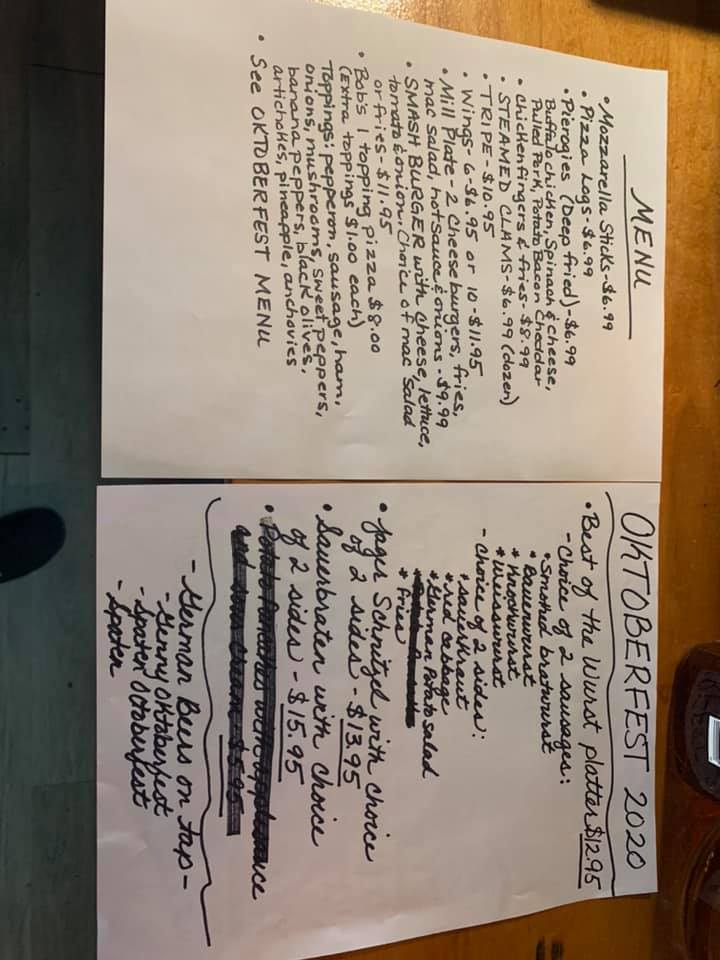 MENU
• Mozzarella Sticks - $6.99
• Pizza Logs - $6.99
• Pierogies (Deep fried) - $6.99
Buffalo chicken, Spinach & cheese,
Pulled Pork, Potato Bacon Cheddar
• Chicken fingers & fries - $8.99
• STEAMED CLAMS - $6.99 (dozen)
• TRIPE - $10.95
• Wings - 6 - $6.95 or 10 - $11.95
• Mill Plate - 2 Cheeseburgers, fries,
mac salad, hot sauce & onions - $9.99
• SMASH BURGER with cheese, lettuce,
tomato & onion. Choice of mac salad
or fries - $11.95
• Bob's 1 topping pizza $8.00
(Extra toppings $1.00 each)
Toppings: pepperoni, sausage, ham,
onions, mushrooms, sweet peppers,
banana peppers, black olives,
artichokes, pineapple, anchovies
• See OKTOBERFEST MENU
OKTOBERFEST 2020
• Best of the Wurst platter $12.95
- Choice of 2 sausages:
* Smoked bratwurst
* Bauernwurst
* Knockwurst
* Weisswurst
- Choice of 2 sides:
* Sauerkraut
* red cabbage
* German Potato Salad
* Fries
• Jager Schnitzel with choice
of 2 sides - $13.95
• Sauerbraten with choice
of 2 sides - $15.95
• Potato Pancakes with applesauce
and sour cream $5.95
- German Beers on tap -
- Genny Oktoberfest
- Spaten Octoberfest
- Spaten